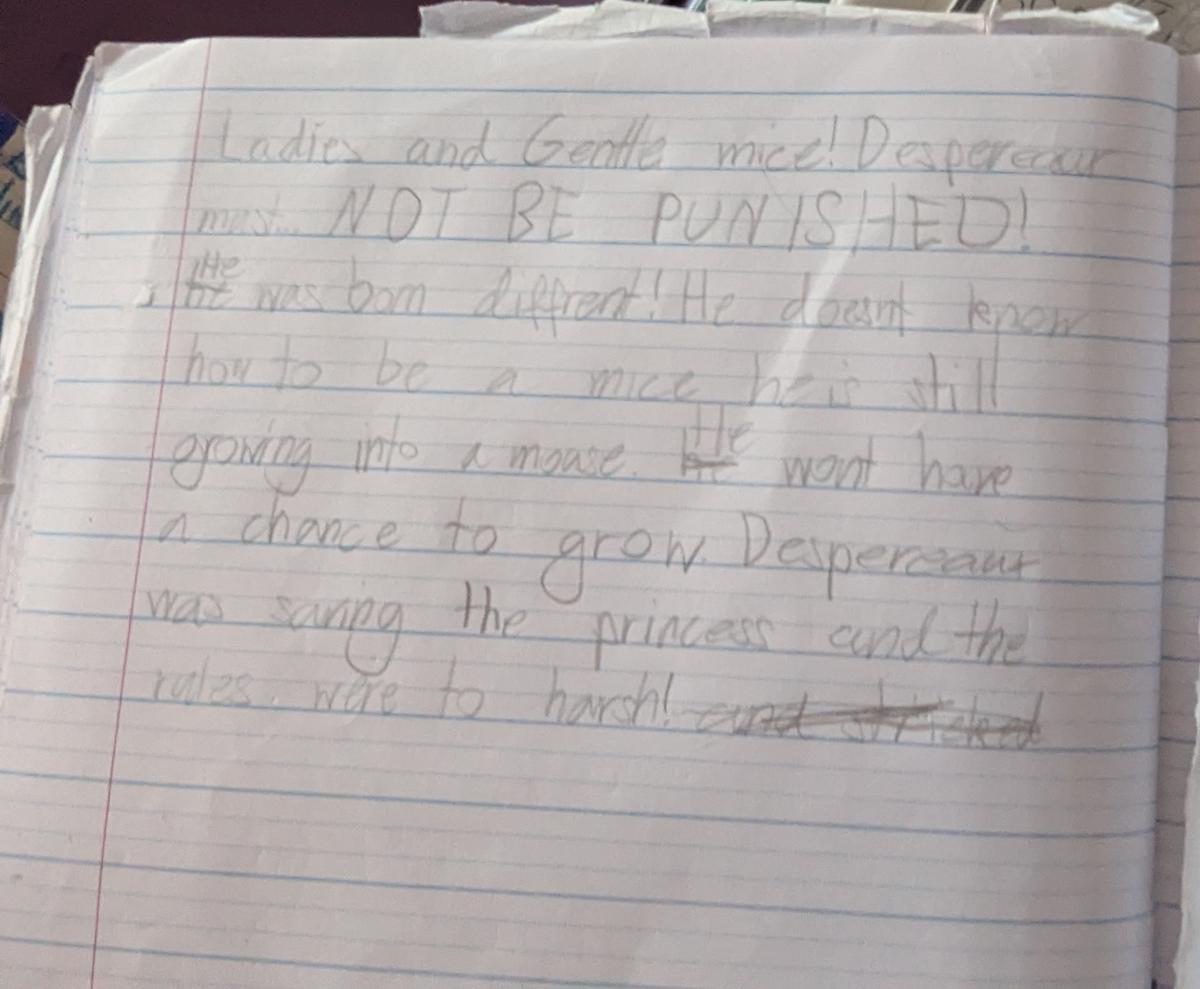 Ladies and Gentle mice! Despereaux
must NOT BE PUNISHED!
He was born diffrent! He doesnt know
how to be a mice he is still
growing into a mouse. He wont have
a chance to grow. Despereaux
was saving the princess and the
rules were to harsh!